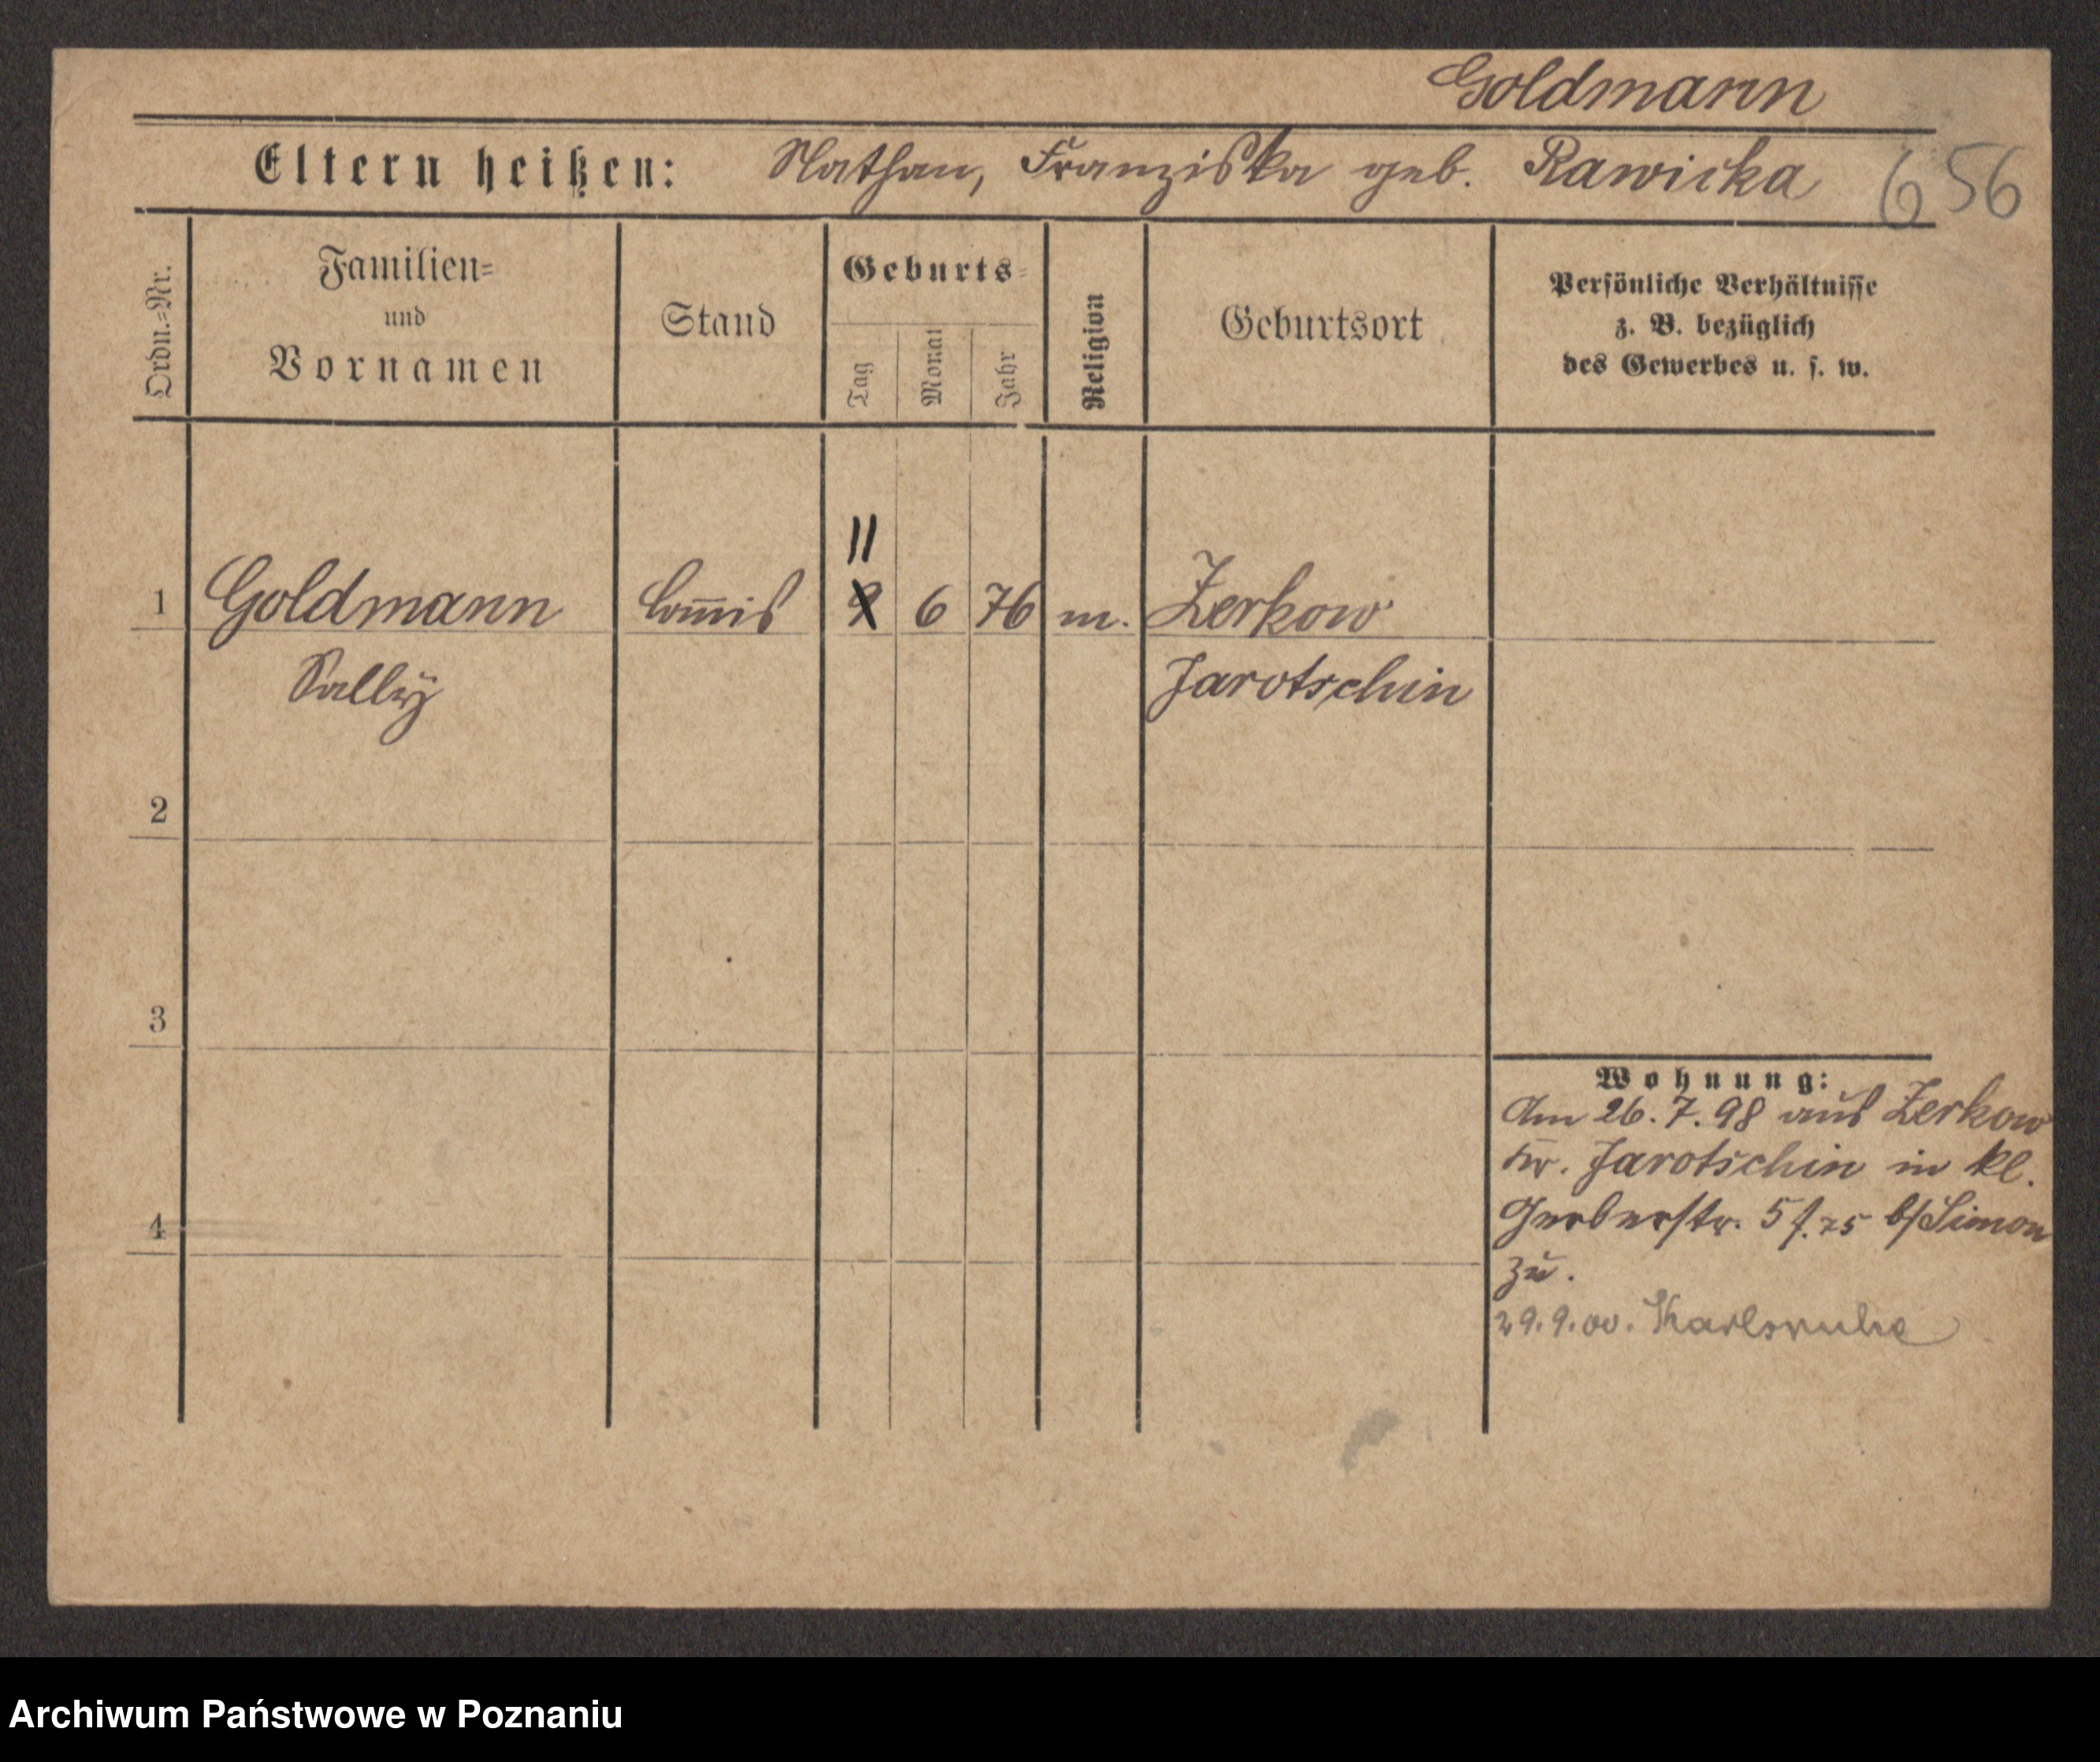 Goldmann
Eltern heißen: Nathan, Franziska geb. Rawicka
656
Ordn.=Nr.
Familien=
und
Vornamen
Stand
Geburts=
Tag
Monat
Jahr
Religion
Geburtsort
Persönliche Verhältnisse
z. B. bezüglich
des Gewerbes u. s. w.
11
1 Goldmann Com̅is 9 6 76 m. Zerkow
Sally Jarotschin
2
3
Wohnung:
Am 26.7.98 aus Zerkow
Kr. Jarotschin in kl.
4
Gerberstr. 5 f. 75 b/Simon
zu.
29.9.00. Karlsruhe
Archiwum Państwowe w Poznaniu